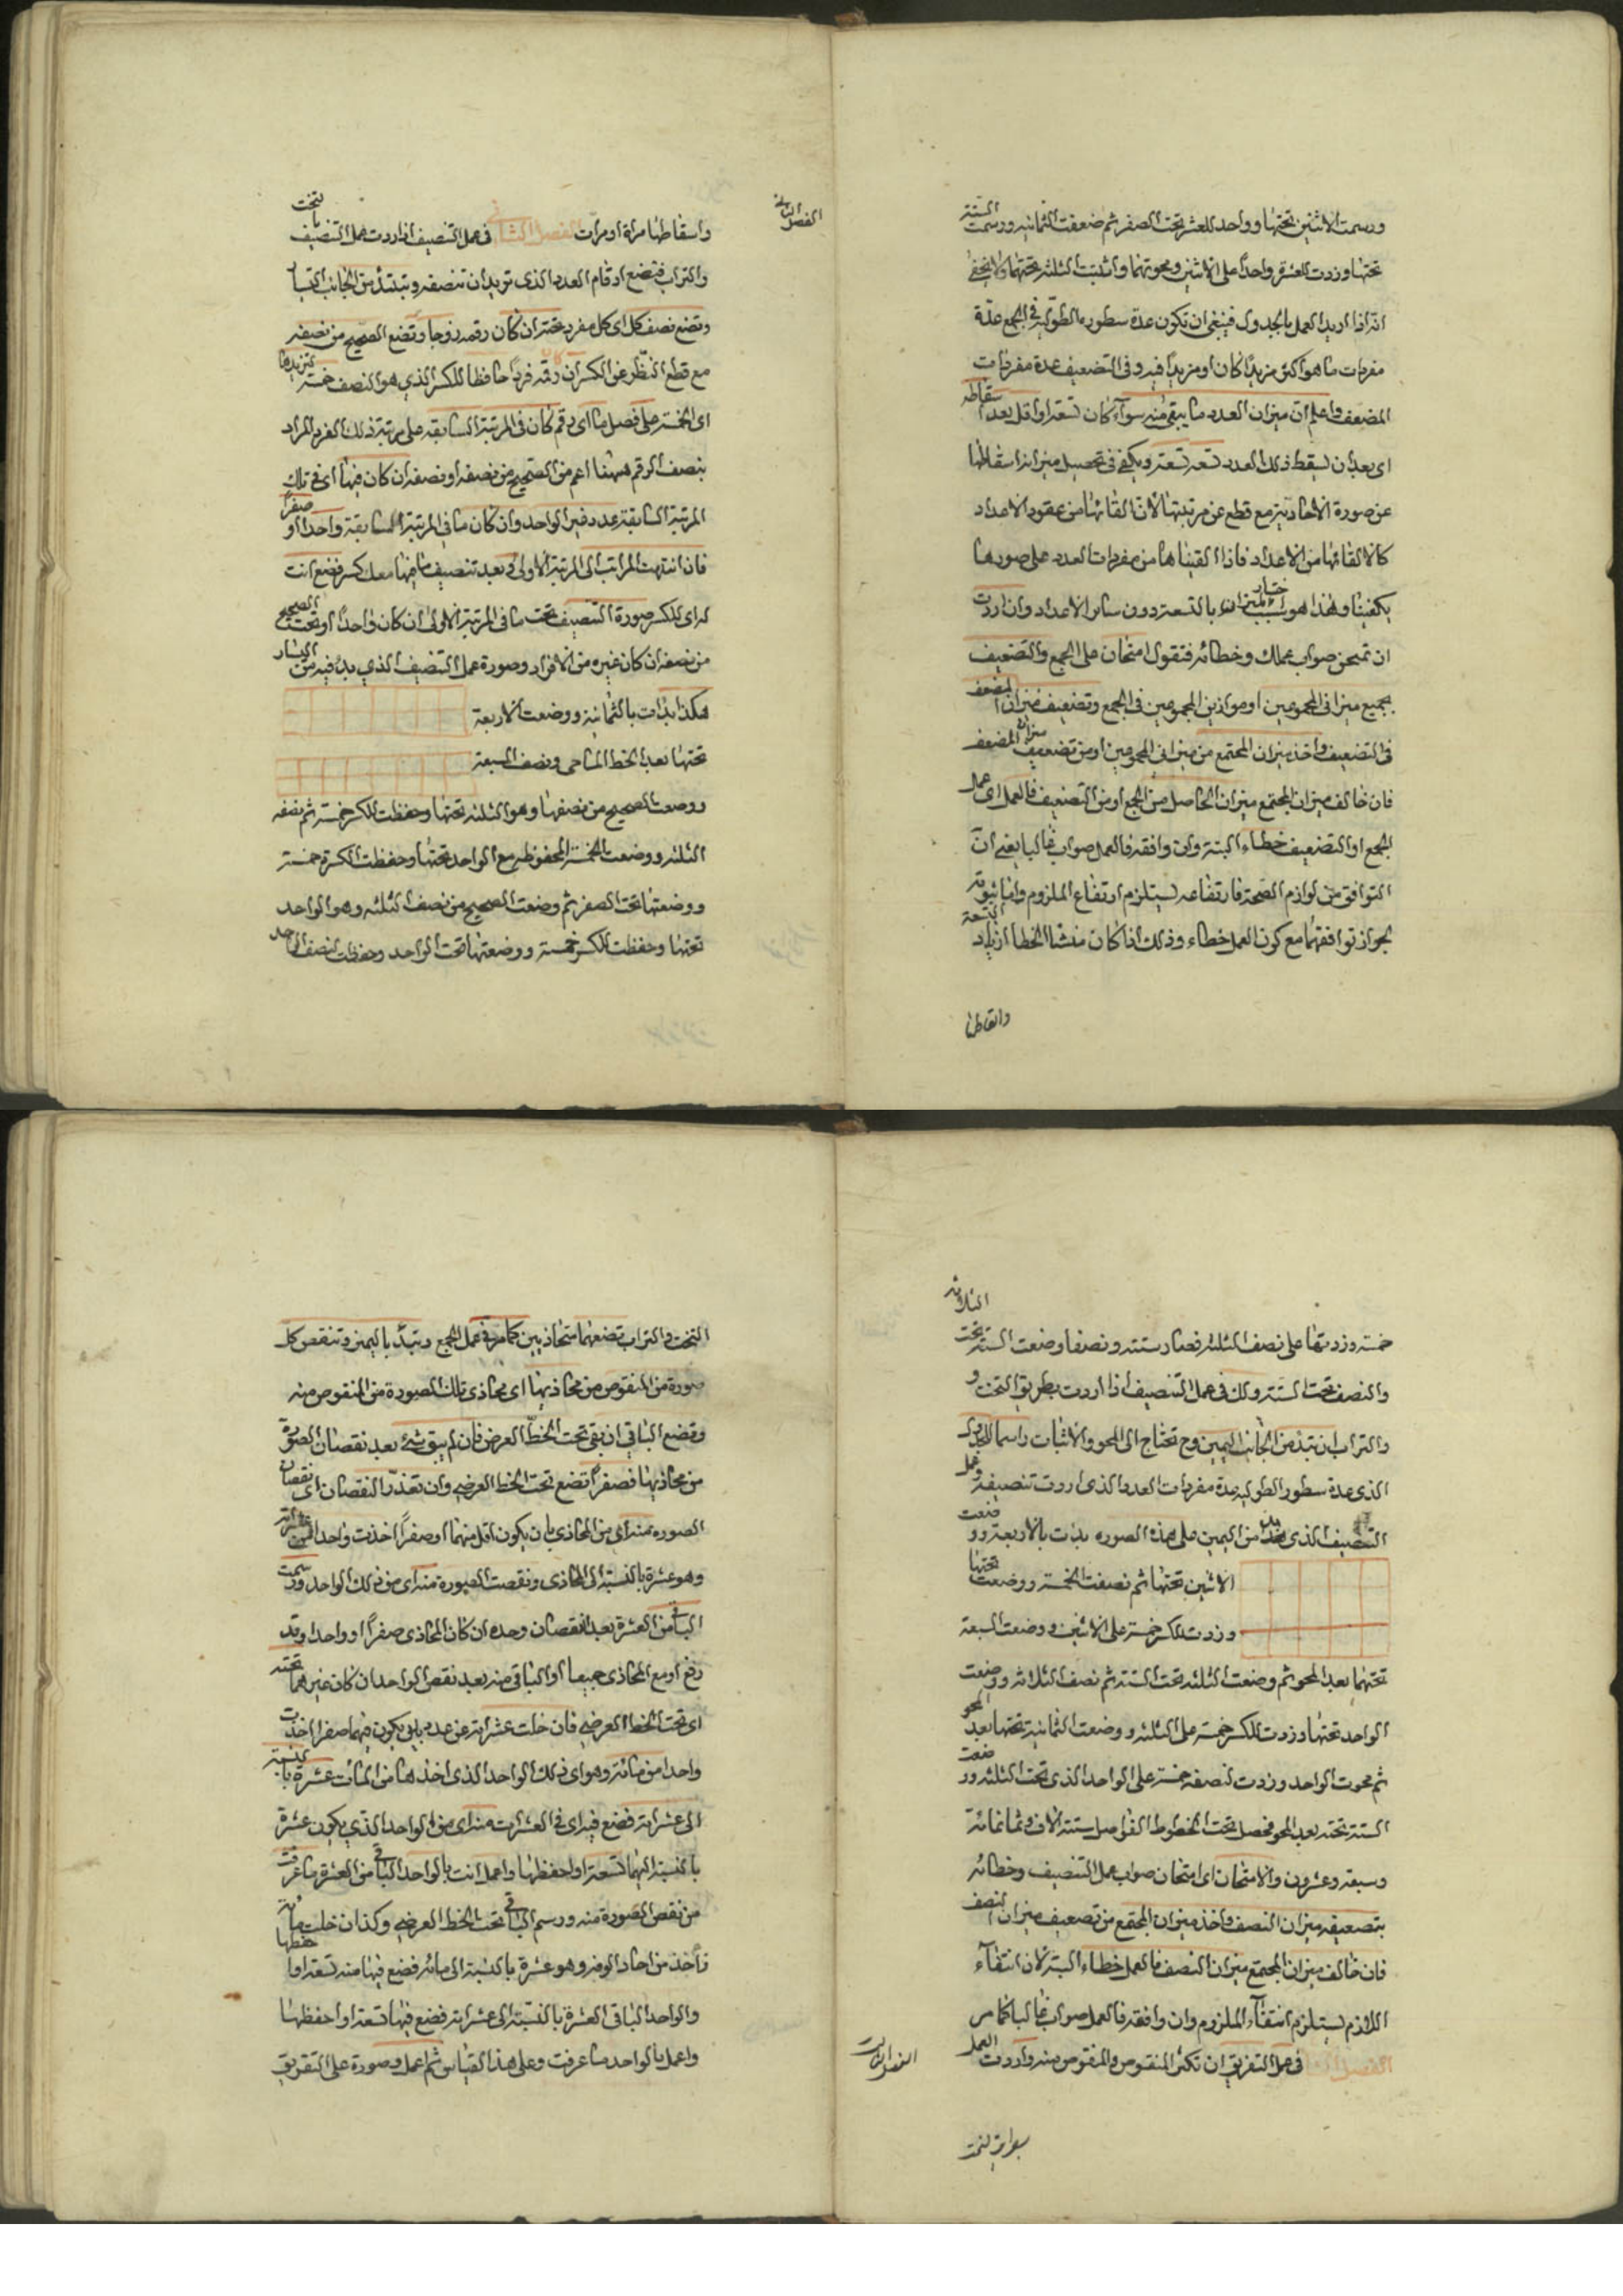 ورسمت الاثنين تحتها وواحد للعشر تحت الصفر ثم ضعفت الثمانية ورسمت الستة
تحتها وزدت للعشرة واحدا على الاثنين ومحوتهما واثبت الثلثة تحتهما ولا يخفى
انه اذا اريد العمل بالجدول فينبغى ان تكون عدة سطوره الطولية فى الجمع عدة
مفردات ما هو اكثر مزيدا كان او مزيدا فيه وفى التضعيف عدة مفردات
المضعف واعلم ان ميزان العدد ما يبقى منه سواء كان تسعة او اقل بعد اسقاطه
اى بعد ان يسقط ذلك العدد تسعة تسعة ويكفى فى تحصيل ميزانه اسقاطها
عن صورة الآحادية مع قطع عن مرتبتها لان القائها من عقود الاعداد
كالقائها من الاعداد فاذا القيناها من مفردات العدد على صورها
يكفينا وهذا هو سبب اختيار الميزان بالتسعة دون سائر الاعداد وان اردت
ان تمتحن صواب عملك وخطائه فنقول امتحان عمل الجمع والتضعيف
بجميع ميزانى المجموعين او موازين المجموعين فى الجمع وتضعيف ميزان المضعف
فى التضعيف واخذ ميزان المجتمع من ميزانى المجموعين او من تضعيف ميزان المضعف
فان خالف ميزان المجتمع ميزان الحاصل من الجمع او من التضعيف فالعمل اى عمل
الجمع او التضعيف خطاء البتة وان وافقه فالعمل صواب غالبا يعنى ان
التوافق من لوازم الصحة فارتفاعه يستلزم ارتفاع الملزوم واما ثبوته
لجواز توافقهما مع كون العمل خطاء وذلك اذا كان منشا الخطا ازدياد التسعة
واسقاطها
الفصل الثانى
واسقاطها مرة او مرات الفصل الثانى فى عمل التنصيف اذا اردت عمل التنصيف بالتخت
والتراب فتضع ارقام العدد الذى تريد ان تنصفه وتبتدئ من الجانب اليسار
وتضع نصف كل اى كل مفرد تحته ان كان رقمه زوجا وتضع الصحيح من نصفه
مع قطع النظر عن الكسر ان كان رقمه فردا حافظا للكسر الذى هو النصف خمسة لتزيدها
اى الخمسة على فصل ما اى رقم كان فى المرتبة السابقة على مرتبة ذلك الفرد المراد
بنصف الرقم ههنا اعم من الصحيح من نصفه او نصفه ان كان فيها اى فى تلك
المرتبة السابقة عدد غير الواحد وان كان ما فى المرتبة السابقة واحدا او صفرا
فاذا انتهت المراتب الى المرتبة الاولى وبعد تنصيف ما فيها معك كسر فضع انت
له اى للكسر صورة التنصيف تحت ما فى المرتبة الاولى ان كان واحدا او تحت الصحيح
من نصفه ان كان غيره من الافراد وصورة عمل التنصيف الذى بدئ فيه من اليسار
هكذا بدات بالثمانية ووضعت الاربعة
تحتها بعد الخط الماحى ونصف السبعة
ووضعت الصحيح من نصفها وهو الثلثة تحتها وحفظت للكسر خمسة ثم نصفه
الثلثة ووضعت الخمسة المحفوظة مع الواحد تحتها وحفظت الكسرة خمسة
ووضعتها تحت الصفر ثم وضعت الصحيح من نصف الثلثة وهو الواحد
تحتها وحفظت للكسر خمسة ووضعتها تحت الواحد وحفظت لنصف الواحد
خمسة وزدتها على نصف الثلثة فصار ستة ونصفا وضعت الستة تحت الثلاثة
والنصف تحت الستة ولك فى عمل التنصيف اذا اردت بطريق التخت و
والتراب ان تبتدئ من الجانب اليمين وح تحتاج الى المحو والاثبات راسما للجدول
الذى عدة سطور الطولية عدة مفردات العدد الذى اردت تنصيفه وعمل
التنصيف الذى بدئ من اليمين على هذه الصورة بدات بالاربعة ووضعت
الاثنين تحتها ثم نصفت الخمسة ووضعت تحتها
وزدت للكسر خمسة على الاثنين ووضعت السبعة
تحتهما بعد المحو ثم وضعت الثلثة تحت الستة ثم نصف الثلاثة ووضعت
الواحد تحتها وزدت للكسر خمسة على الثلثة ووضعت الثمانية تحتها بعد المحو
ثم محوت الواحد وزدت لنصفه خمسة على الواحد الذى تحت الثلثة ووضعت
الستة تحته بعد المحو فحصل تحت الخطوط الفواصل ستة الاف وثمانمائة
وسبعة وعشرون والامتحان اى امتحان صواب عمل التنصيف وخطائه
بتضعيف ميزان النصف واخذ ميزان المجتمع من تضعيف ميزان النصف
فان خالف ميزان المجتمع ميزان النصف فالعمل خطاء البتة لان انتفاء
اللازم يستلزم انتفاء الملزوم وان وافقه فالعمل صواب غالبا كما مر
الفصل الثالث
فى عمل التفريق ان تكثر المنقوص والمنقوص منه واردت العمل
التخت والتراب تضعهما متحاذيين كما مر فى عمل الجمع وتبدا باليمين وتنقص كل
صورة من المنقوص من محاذيها اى محاذى تلك الصورة من المنقوص منه
وتضع الباقى ان بقى تحت الخط العرضى فان لم يبق شئ بعد نقصان الصورة
من محاذيها فصفرا تضع تحت الخط العرضى وان تعذر النقصان اى نقصان
الصورة منه اى من المحاذى بان يكون اقل منها او صفرا اخذت واحدا من عشراته
وهو عشرة بالنسبة الى المحاذى ونقصت الصورة منه اى من ذلك الواحد ورسمت
الباقى من العشرة بعد النقصان وحده ان كان المحاذى صفرا او واحدا وقد
رفع او مع المحاذى جميعا او الباقى منه بعد نقص الواحد ان كان غيرهما تحته
اى تحت الخط العرضى فان خلت عشراته عن عدد بان يكون فيها صفرا اخذت
واحدا من مائته وهو اى ذلك الواحد الذى اخذ ها من المات عشرة بالنسبة
الى عشراته فضع فيه اى فى العشرات منه اى من الواحد الذى يكون عشرة
بالنسبة اليها تسعة او احفظها واعمل انت بالواحد الباقى من العشرة ما عرفت
من نقص الصورة منه ورسم الباقى تحت الخط العرضى وكذا ان خلت مائة
تأخذ من احاد الوفه وهو عشرة بالنسبة الى مائة فضع فيها منه تسعة او احفظها
والواحد الباقى العشرة بالنسبة الى عشراته فضع فيها تسعة او احفظها
واعمل بالواحد ما عرفت وعلى هذا القياس ثم اعمل وصورة على التفريق